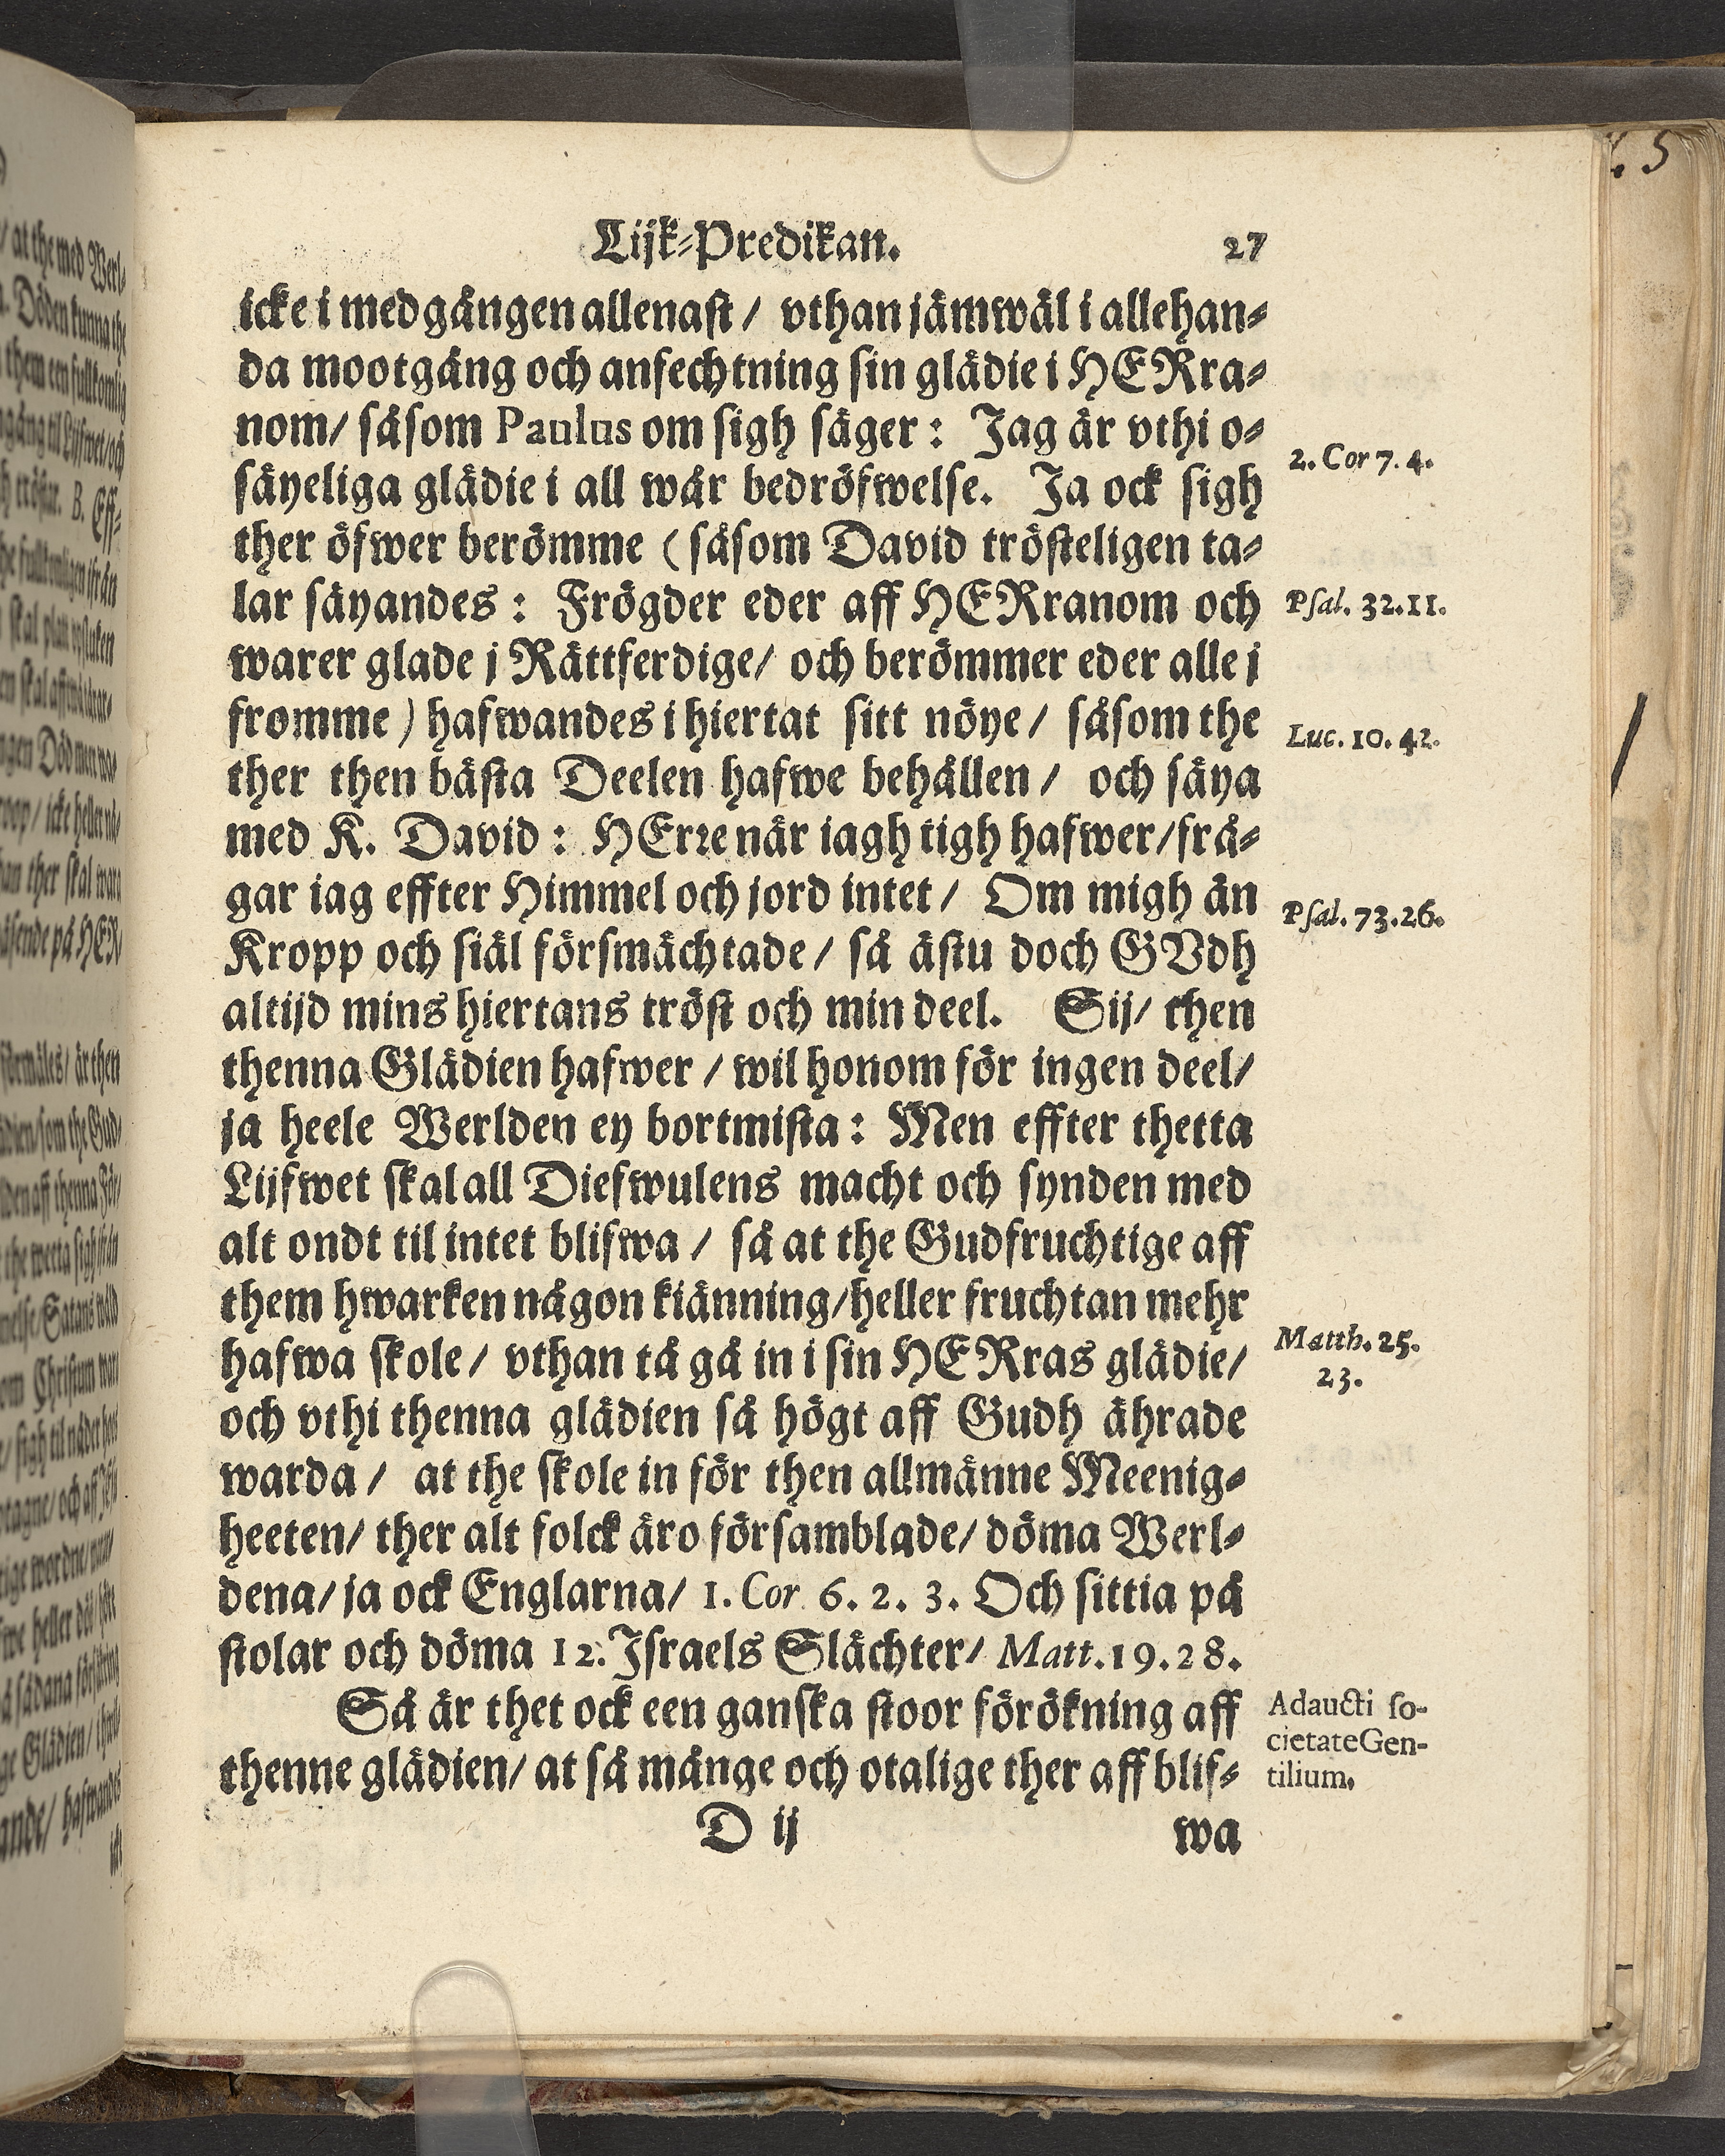 Lijk-Predikan. 27
icke i medgången allenast / vthan jämwäl i allehan-
da mootgång och anfechtning sin glädie i HERra-
nom/ såsom Paulus om sigh säger: Jag är vthi o-
säyeliga glädie i all wår bedröfwelse. Ja ock sigh
2. Cor 7. 4.
ther öfwer berömme (såsom David trösteligen ta-
lar säyandes: Frögder eder aff HERranom och
Psal. 32.11.
warer glade j Rättferdige/ och berömmer eder alle j
fromme) hafwandes i hiertat sitt nöye/ såsom the
Luc. 10. 42.
ther then bästa Deelen hafwe behållen/ och säya
med K. David: HErre när iagh tigh hafwer/frå-
gar iag effter Himmel och jord intet/ Om migh än
Psal. 73.26.
Kropp och siäl försmächtade/ så ästu doch GVdh
altijd mins hiertans tröst och min deel. Sij/ then
thenna Glädien hafwer/ wil honom för ingen deel/
ja heele Werlden ey bortmista: Men effter thetta
Lijfwet skal all Diefwulens macht och synden med
alt ondt til intet blifwa/ så at the Gudfruchtige aff
them hwarken någon kiänning/heller fruchtan mehr
hafwa skole/ vthan tå gå in i sin HERras glädie/
Matth. 25.
23.
och vthi thenna glädien så högt aff Gudh ährade
warda/ at the skole in för then allmänne Meenig-
heeten/ ther alt folck äro församblade/ döma Werl-
dena/ ja ock Englarna/ 1. Cor 6. 2. 3. Och sittia på
stolar och döma 12. Israels Slächter/ Matt. 19. 28.
Så är thet ock een ganska stoor förökning aff
thenne glädien/ at så månge och otalige ther aff blif-
Adaucti so-
cietate Gen-
tilium.
D ij wa